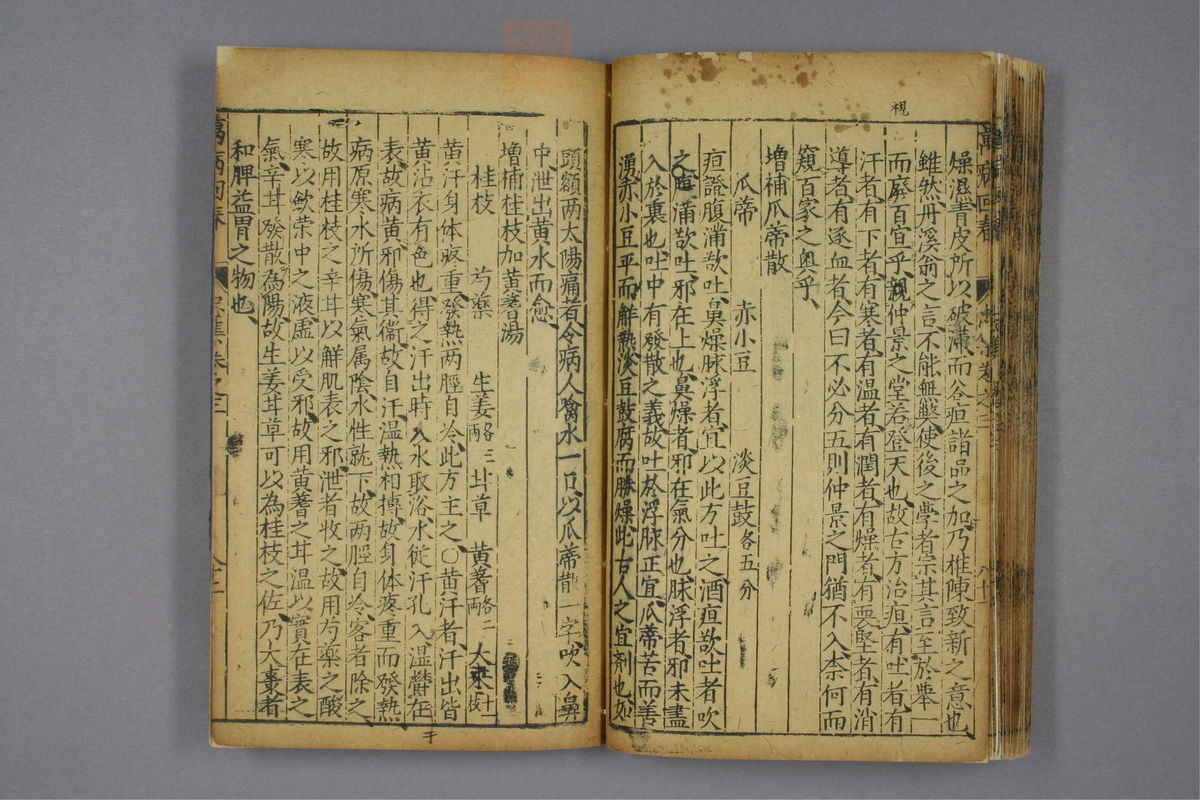 視
萬病回春
燥濕青皮所以破滯而谷疸諸品之加乃推陳致新之意也
雖然丹溪翁之言不能無弊使後之學者宗其言至於舉一
而廢百宜乎親仲景之堂若登天也故古方治疸有吐者有
汗者有下者有寒者有温者有潤者有燥者有耎堅者有消
導者有逐血者今曰不必分五則仲景之門猶不入柰何而
窺百家之奥乎
增補瓜蒂散
瓜蒂 赤小豆 淡豆鼓各五分
疸證腹滿欲吐鼻燥脉浮者宜以此方吐之酒疸欲吐者吹
之腹滿欲吐邪在上也鼻燥者邪在氣分也脉浮者邪未盡
入於裏也吐中有發散之義故吐於浮脉正宜瓜蒂苦而善
湧赤小豆平而鮮熱淡豆鼓腐而勝燥此古人之宜劑也如
頭額两太陽痛者令病人噙水一口以瓜蒂散一字吹入鼻
中泄出黄水而愈
增補桂枝加黄蓍湯
桂枝 芍藥 生姜各三兩 甘草 黄蓍各二兩 大枣十一枝
黄汗身体疼重發熱两脛自冷此方主之〇黄汗者汗出皆
黄沾衣有色也得之汗出時入水取浴水従汗孔入温欝在
表故病黄邪傷其衛故自汗温熱相摶故身体疼重而發熱
病原寒水所傷寒氣属陰水性就下故两脛自冷客者除之
故用桂枝之辛甘以鮮肌表之邪泄者收之故用芍藥之酸
寒以歛荣中之液虚以受邪故用黄蓍之甘温以實在表之
氣辛甘發散為陽故生姜甘草可以為桂枝之佐乃大棗者
和脾益胃之物也
萬病回春